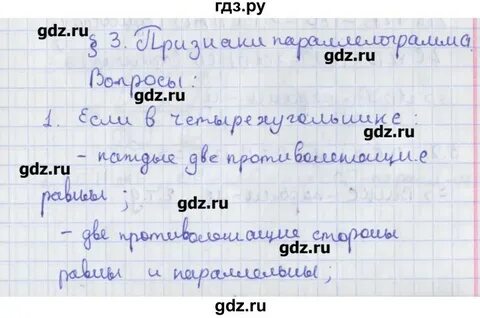 гдз.ру
§ 3. Признаки параллелограмма.
gdz.ru gdz.ru
Вопросы:
gdz.ru
1. Если в четырехугольнике:
gdz.ru gdz.ru
- каждые две противолежащие
gdz.ru
равны;
gdz.ru gdz.ru
- две противолежащие стороны
gdz.ru
равны и параллельны;
gdz.ru